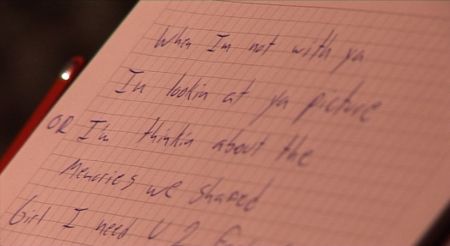 When Im not with ya
Im lookin at ya picture
OR I'm thinkin about the
Memories we shared
Girl I need U 2